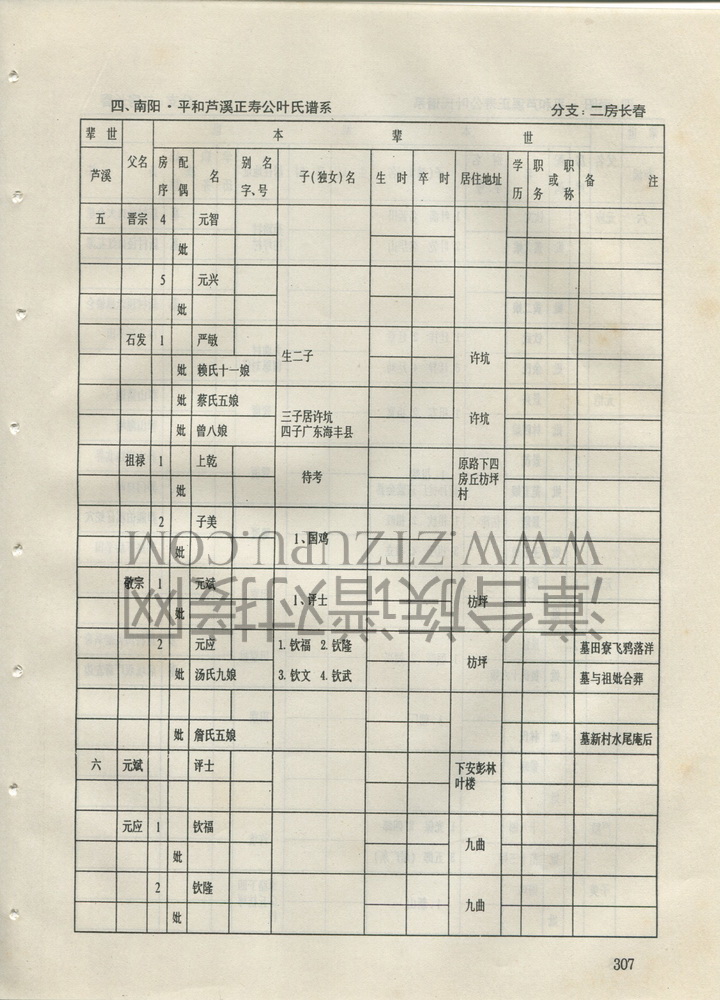 四、南阳·平和芦溪正寿公叶氏谱系 分支：二房长春
辈世 本辈世
芦溪 父名 房序 配偶 名 别名字、号 子(独女)名 生时 卒时 居住地址 学历 职务或职称 备注
五 晋宗 4 元智
妣
5 元兴
妣
石发 1 严敏 生二子 许坑
妣 赖氏十一娘
妣 蔡氏五娘 三子居许坑 许坑
妣 曾八娘 四子广东海丰县
祖禄 1 上乾 待考 原路下四房丘枋坪村
妣
2 子美 1、国鸡
妣
敬宗 1 元斌 1、评士 枋坪
妣
2 元应 1.钦福 2.钦隆 枋坪 墓田寮飞鸦落洋
妣 汤氏九娘 3.钦文 4.钦武 墓与祖妣合葬
妣 詹氏五娘 墓新村水尾庵后
六 元斌 评士 下安彭林叶楼
元应 1 钦福 九曲
妣
2 钦隆 九曲
妣
307
漳台族谱对接网
WWW.ZTZUPU.COM